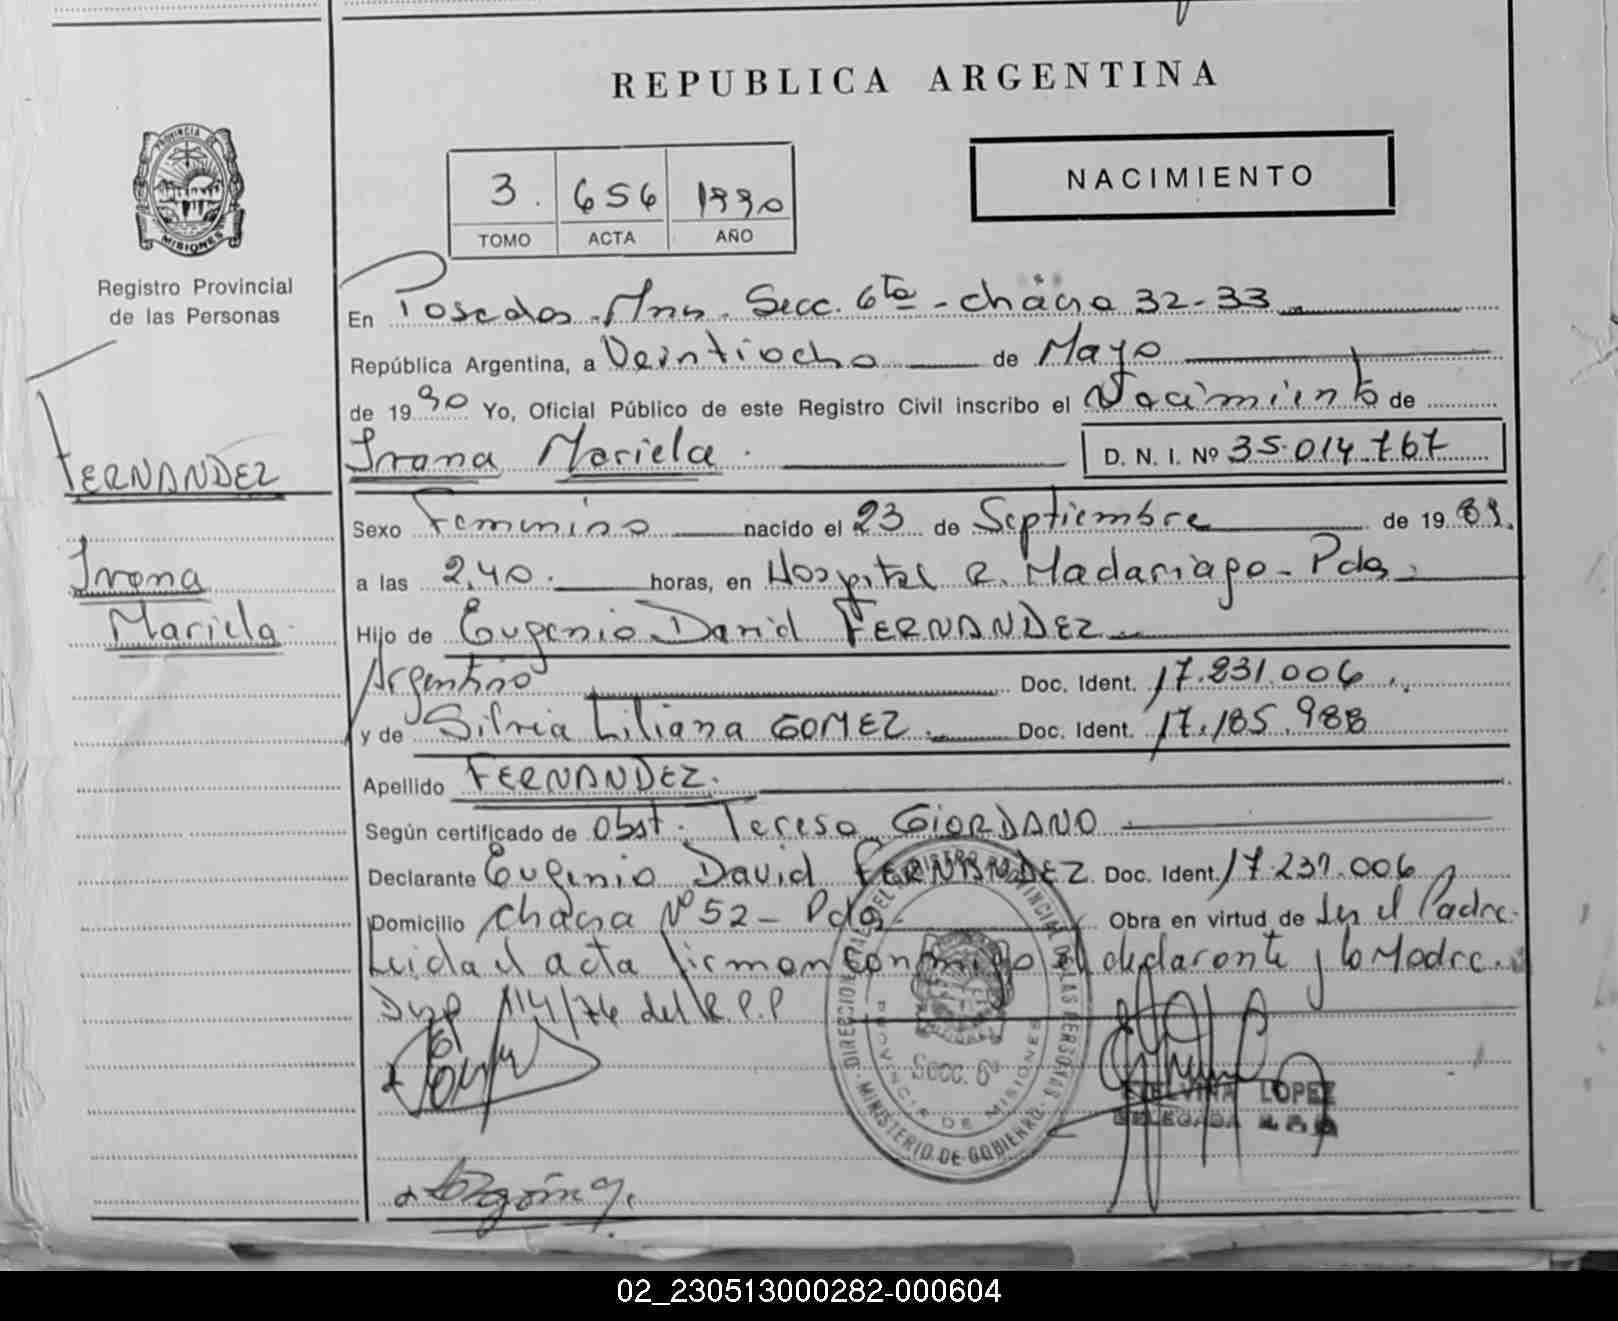 REPUBLICA ARGENTINA
PROVINCIA DE
MISIONES
Registro Provincial
de las Personas
3. 656 1990
TOMO ACTA AÑO
NACIMIENTO
En Posadas Mnes. Secc. 6ta - chacra 32-33
República Argentina, a Veintiocho de Mayo
de 1990 Yo, Oficial Público de este Registro Civil inscribo el Nacimiento de
Ivana Mariela. D. N. I. Nº 35.014.767
FERNANDEZ
Ivana
Mariela
Sexo Femenino nacido el 23 de Septiembre de 1989.
a las 2,40. horas, en Hospital R. Madariaga - Pdas.
Hijo de Eugenio David FERNANDEZ
Argentino Doc. Ident. 17.231.006
y de Silvia Liliana GOMEZ. Doc. Ident. 17.185.988
Apellido FERNANDEZ.
Según certificado de Obst. Teresa GIORDANO
Declarante Eugenio David FERNANDEZ Doc. Ident. 17.231.006
Domicilio chacra Nº 52 - Pdas Obra en virtud de Ser el Padre.
Leida el acta firman conmigo el declarante y la Madre.
Disp 114/76 del R.P.P
DIRECCION DEL REGISTRO PROVINCIAL DE LAS PERSONAS
MINISTERIO DE GOBIERNO
PROVINCIA DE MISIONES
Secc. 6ª
LOPEZ
DELEGADA
02_230513000282-000604